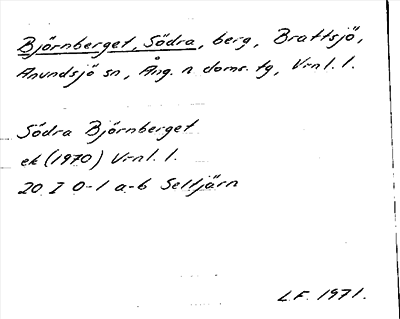 Björnberget, Södra, berg, Brattsjö,
Anundsjö sn, Ång. n doms. tg, Vrnl. l.
Södra Björnberget
ek (1970) Vrnl. l.
20 I 0-1 a-b Seltjärn
L.F. 1971.